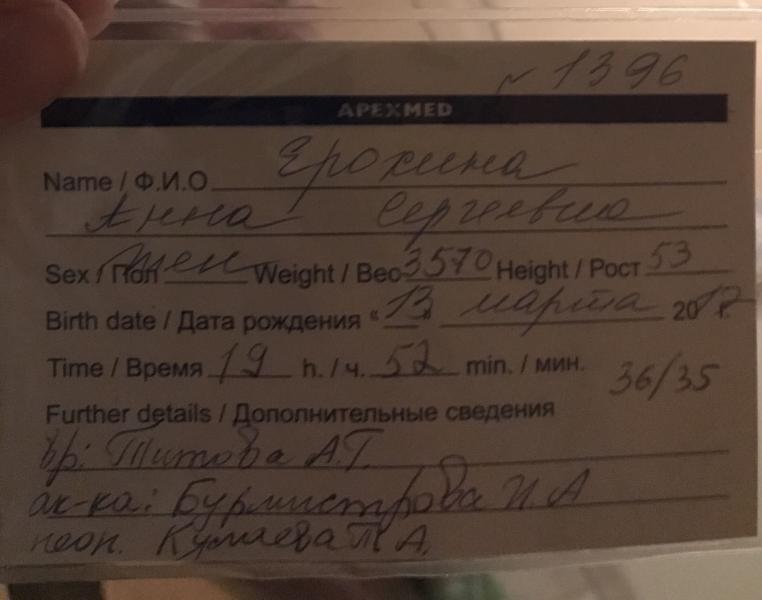 № 1396
APEXMED
Name / Ф.И.О Ерохина
Анна Сергеевна
Sex / Пол жен Weight / Вес 3570 Height / Рост 53
Birth date / Дата рождения "13" марта 2017 г.
Time / Время 19 h. / ч. 52 min. / мин.
36/35
Further details / Дополнительные сведения
вр: Титова А.Г.
ак-ка: Бурмистрова И.А
неон. Кумаева Т А.